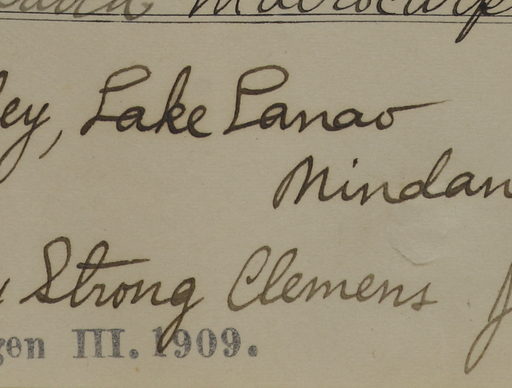 ey, Lake Lanao
Mindan
Strong Clemens
gen III. 1909.